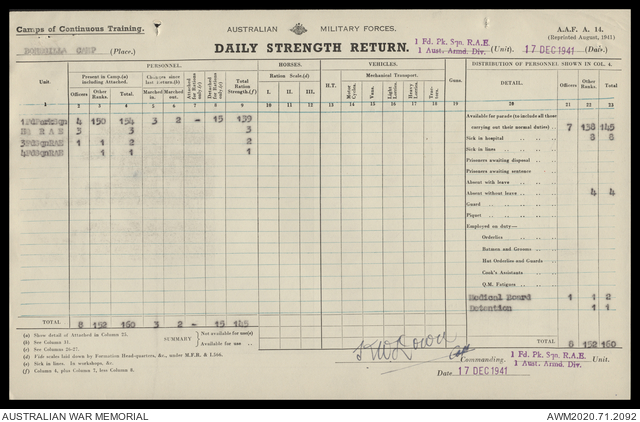 Camps of Continuous Training.
AUSTRALIAN MILITARY FORCES.
A.A.F. A. 14.
(Reprinted August, 1941)
BONEGILLA CAMP (Place.)
DAILY STRENGTH RETURN.
1 Fd. Pk. Sqn. R.A.E.
1 Aust. Armd. Div.
(Unit).
17 DEC 1941 (Date.)
PERSONNEL. HORSES. VEHICLES. DISTRIBUTION OF PERSONNEL SHOWN IN COL. 4.
Unit. Present in Camp.(a) including Attached. Changes since last return.(b) Attached for Rations only.(c) Detached for Rations only.(c) Total Ration Strength.(f) Ration Scale.(d) H.T. Mechanical Transport. Guns. DETAIL. Officers Other Ranks. Total.
Officers Other Ranks. Total. Marched in. Marched out. I. II. III. I. II. III. Motor Cycles. Vans. Light Lorries. Heavy Lorries. Trac-tors.
1 2 3 4 5 6 7 8 9 10 11 12 13 14 15 16 17 18 19 20 21 22 23
4 150 154 3 2 - 15 139
3 3 3
1 1 2 2
1 1 1
Available for parade (to include all those
carrying out their normal duties) 7 138 145
Sick in hospital 8 8
Sick in lines
Prisoners awaiting disposal
Prisoners awaiting sentence
Absent with leave
Absent without leave 4 4
Guard
Piquet
Employed on duty—
Orderlies
Batmen and Grooms
Hut Orderlies and Guards
Cook's Assistants
Q.M. Fatigues
Medical Board 1 1 2
Detention 1 1
TOTAL 8 152 160 3 2 - 15 145
TOTAL 8 152 160
(a) Show detail of Attached in Column 25.
(b) See Column 31.
(c) See Columns 26-27.
(d) Fide scales laid down by Formation Head-quarters, &c., under M.F.R. & I.
(e) Sick in lines. In workshops, &c.
(f) Column 4, plus Column 7, less Column 8.
SUMMARY
Not available for use(e)
Available for use
Capt
Commanding,
1 Fd. Pk. Sqn. R.A.E.
1 Aust. Armd. Div.
Unit.
Date 17 DEC 1941
AUSTRALIAN WAR MEMORIAL
AWM2020.71.2092